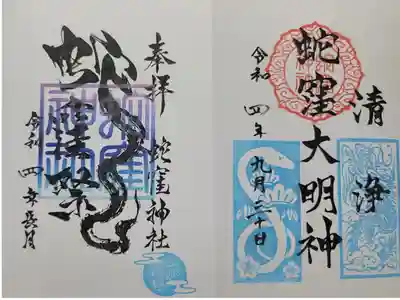 清浄
蛇窪大明神
令和四年
九月二十日
奉拝
蛇窪神社
蛇窪祭
令和四年長月